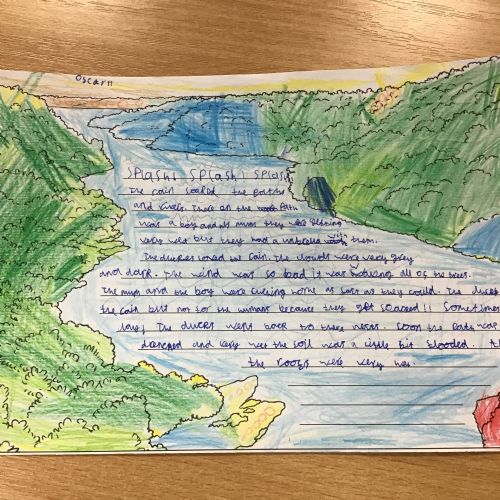 Oscar
Splash! Splash! Splash!
The rain soaked the paths
and rivers. There on the path
was a boy and his mum they were getting
very wet but they had a umbrella with them.
The ducks loved the rain. The clouds were very grey
and dark. The wind was so bad it was moving all of the trees.
The mum and the boy were home as fast as they could. The ducks
the rain but not for the humans because they get soacked!! Sometimes
The ducks went back to there nests. Soon the path was
drenched and very wet the soil was a little bit flooded.
the roofs were very